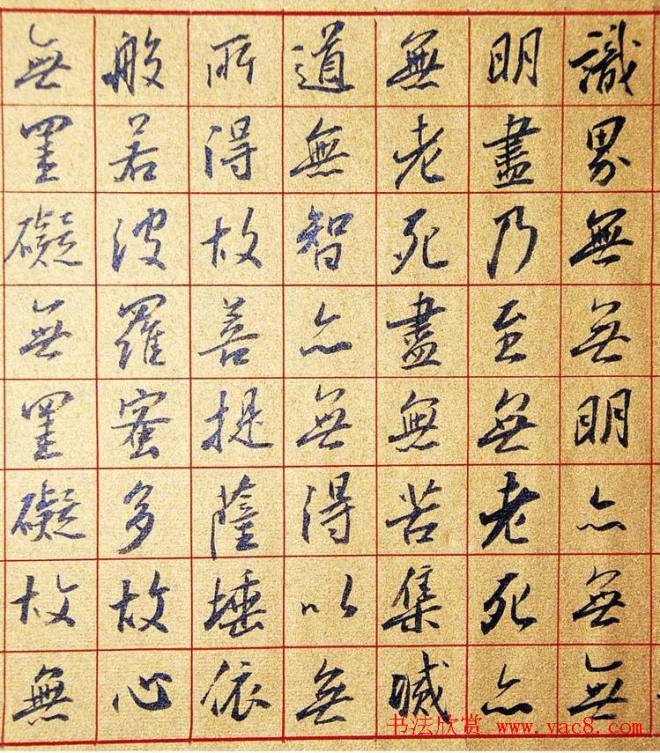 識界無無明亦無無
明盡乃至無老死亦
無老死盡無苦集滅
道無智亦無得以無
所得故菩提薩埵依
般若波羅蜜多故心
無罣礙無罣礙故無
书法欣赏 www.yac8.com